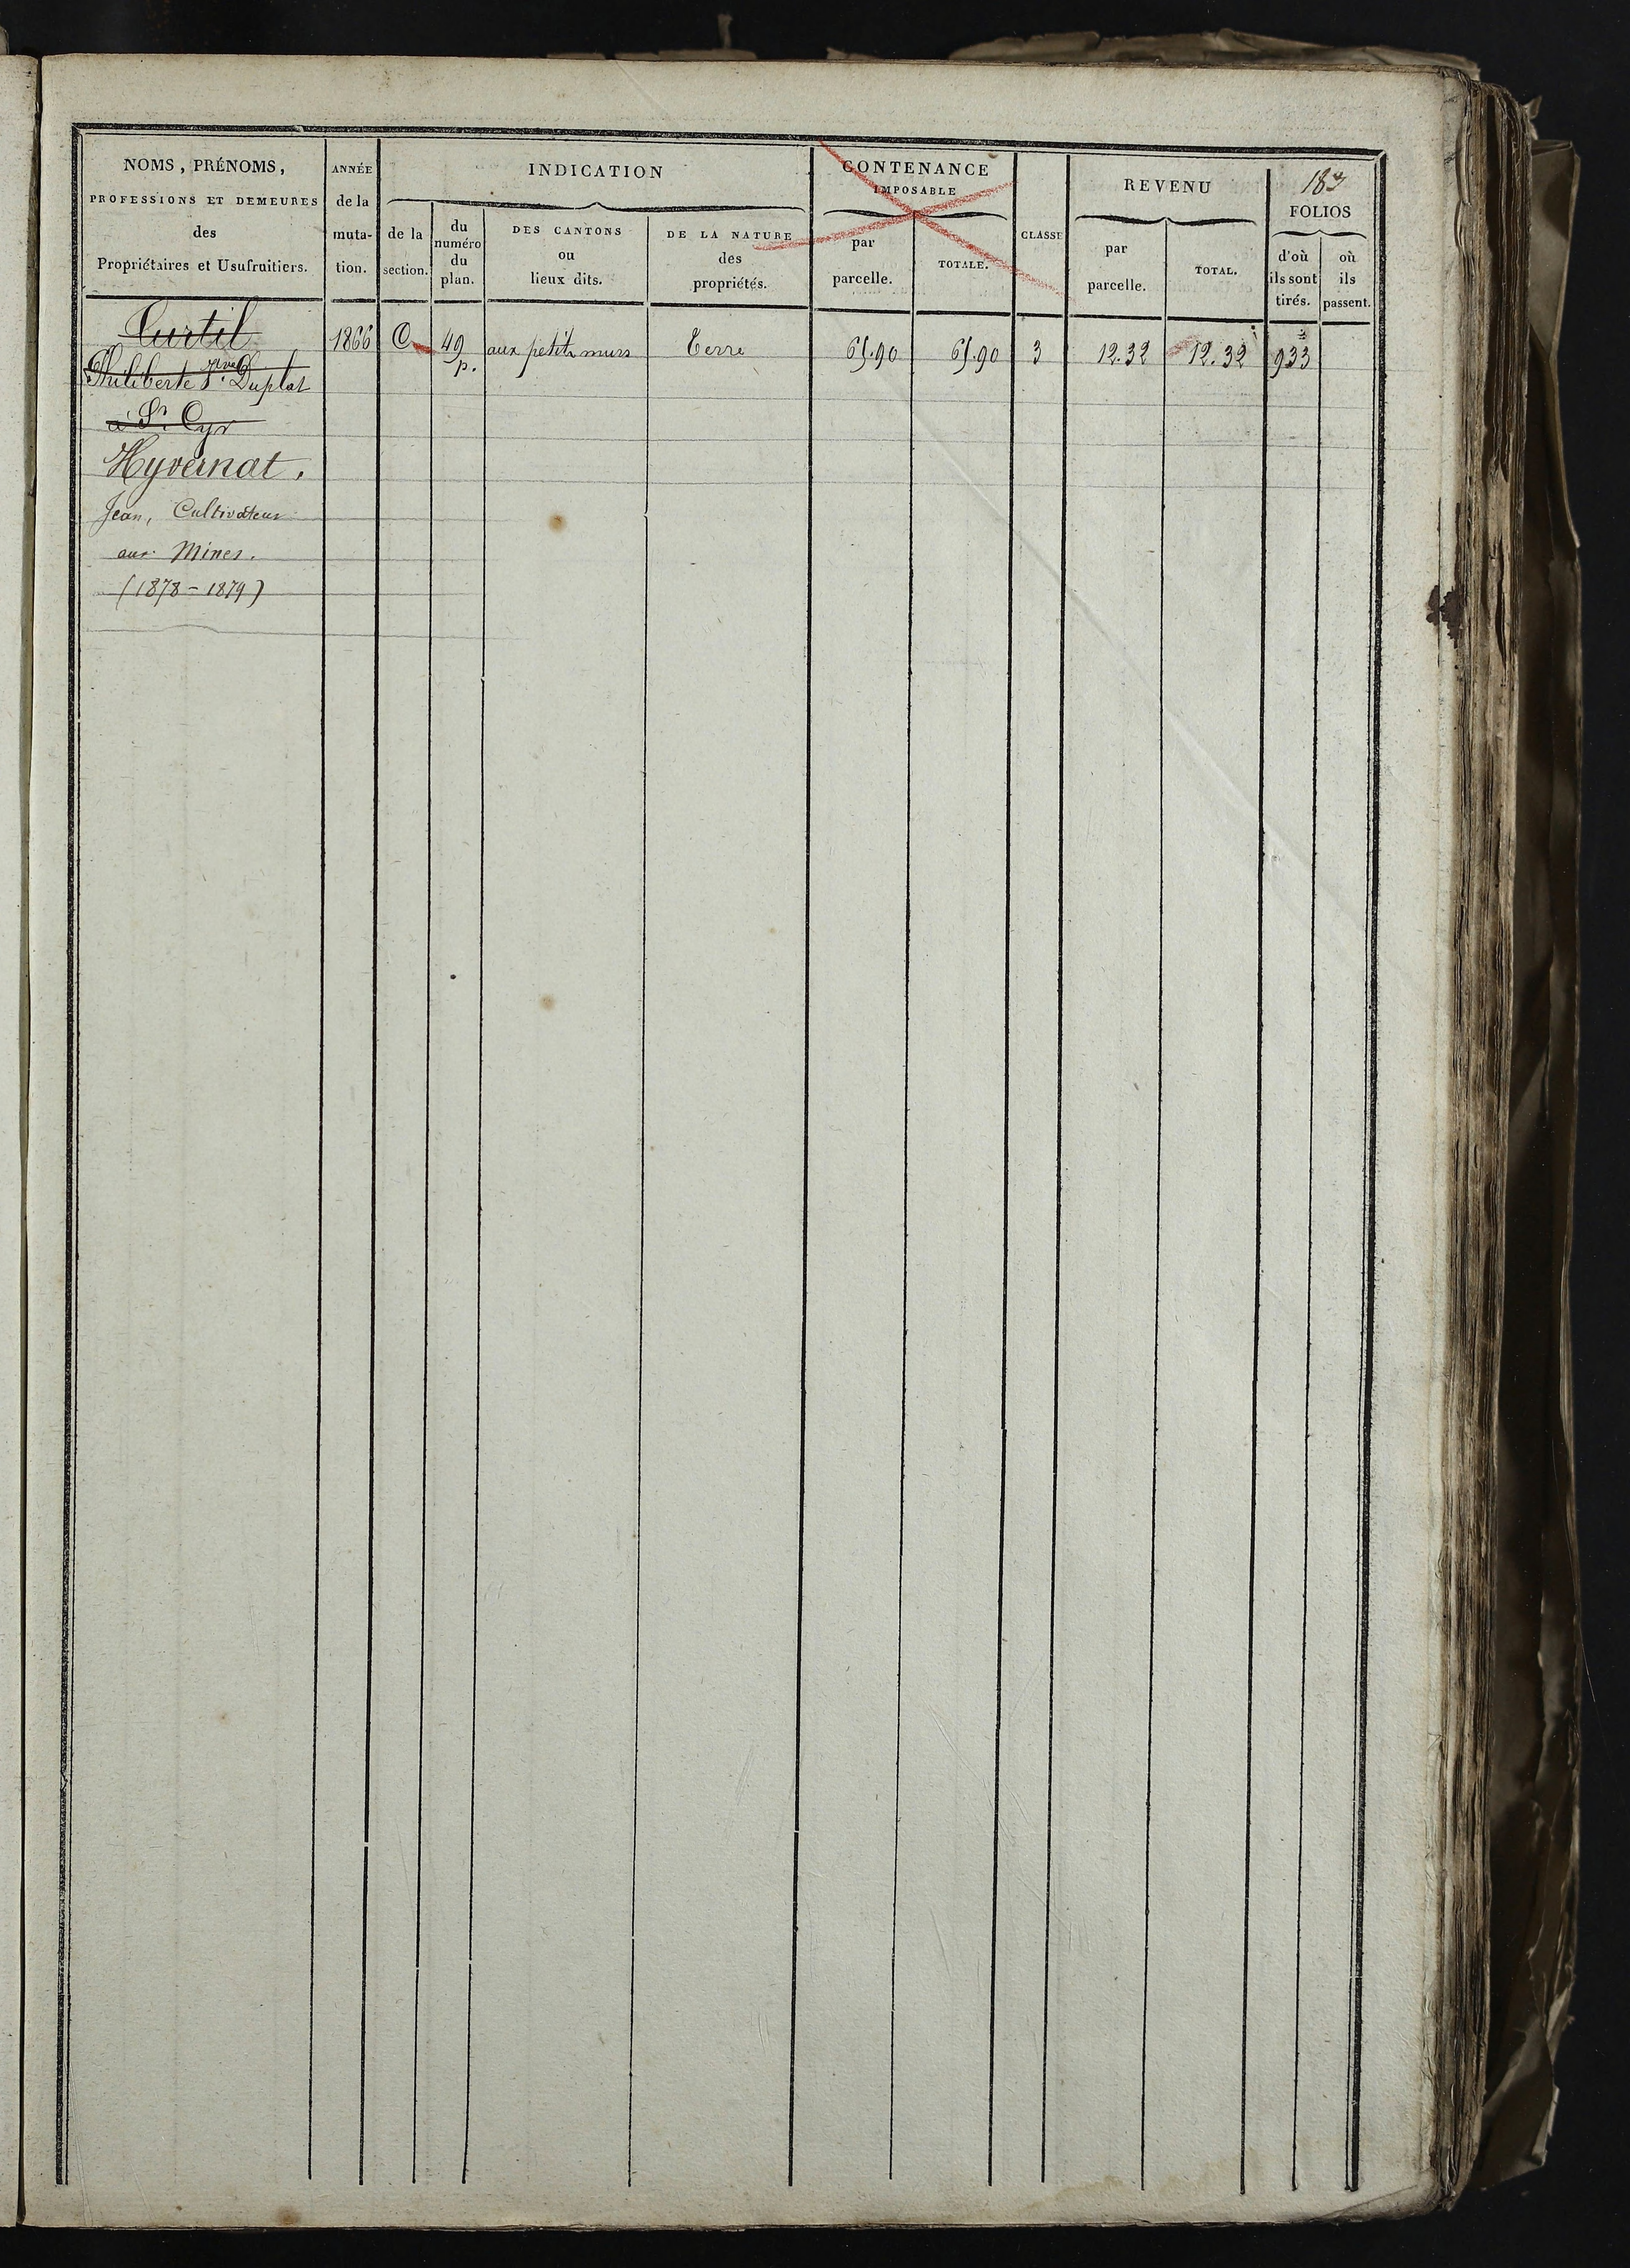 NOMS, PRÉNOMS,
PROFESSIONS ET DEMEURES
des
Propriétaires et Usufruitiers.
ANNÉE
de la
muta-
tion.
INDICATION
de la
section.
du
numéro
du
plan.
DES CANTONS
ou
lieux dits.
DE LA NATURE
des
propriétés.
CONTENANCE
IMPOSABLE
par
parcelle.
TOTALE.
CLASSE
REVENU
par
parcelle.
TOTAL.
183
FOLIOS
d'où
ils sont
tirés.
où
ils
passent.
Curtil
1866 C 49 p. aux petits murs Terre 65.90 65.90 3 12.32 12.32 933
Philiberte Duplat
à St Cyr
Hyvernat.
Jean, Cultivateur
aux Mines.
(1878-1879)